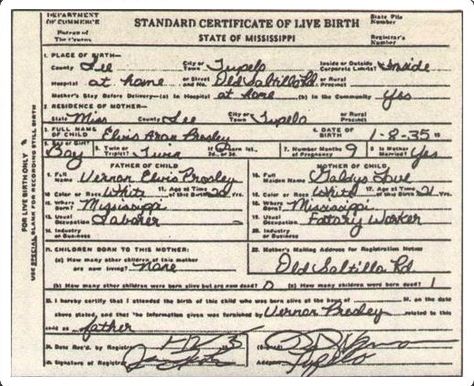 DEPARTMENT OF COMMERCE
Bureau of The Census
STANDARD CERTIFICATE OF LIVE BIRTH
STATE OF MISSISSIPPI
State File Number
Registrar's Number
1. PLACE OF BIRTH—
County Lee City or Town Tupelo Inside or Outside Corporate Limits? Inside
Hospital at home or Street and No. Old Saltillo Rd or Rural Precinct
Mother's Stay Before Delivery—(a) In Hospital at home (b) In the Community Yes
2. RESIDENCE OF MOTHER—
State Miss County Lee City or Town Tupelo or Rural Precinct
3. FULL NAME OF CHILD Elvis Aron Presley 4. DATE OF BIRTH 1-8-35
Boy 5. Twin or Triplet? Twin 7. Number Months 9 8. Is Mother Married? Yes
FATHER OF CHILD MOTHER OF CHILD
9. Full Name Vernon Elvis Presley Full Maiden Name Gladys Love
10. Color or Race White 11. Age at Time of this Birth Color or Race White 17. Age at Time of this Birth 21 Yrs.
12. Where Born? Mississippi Where Born? Mississippi
13. Usual Occupation Laborer Usual Occupation Factory Worker
14. Industry or Business Industry or Business
21. CHILDREN BORN TO THIS MOTHER: Mother's Mailing Address for Registration Notice
(a) How many other children of this mother are now living? None Old Saltillo Rd
(b) How many other children were born alive but are now dead? 0 (c) How many children were born dead? 1
I hereby certify that I attended the birth of this child who was born alive at the hour of M. on the date
above stated, and that the information given was furnished by Vernon Presley related to this
child as father
Date Rec'd. by Registrar
Signature of Registrar Address Tupelo
FOR LIVE BIRTH ONLY
USE SPECIAL BLANK FOR RECORDING STILL BIRTH